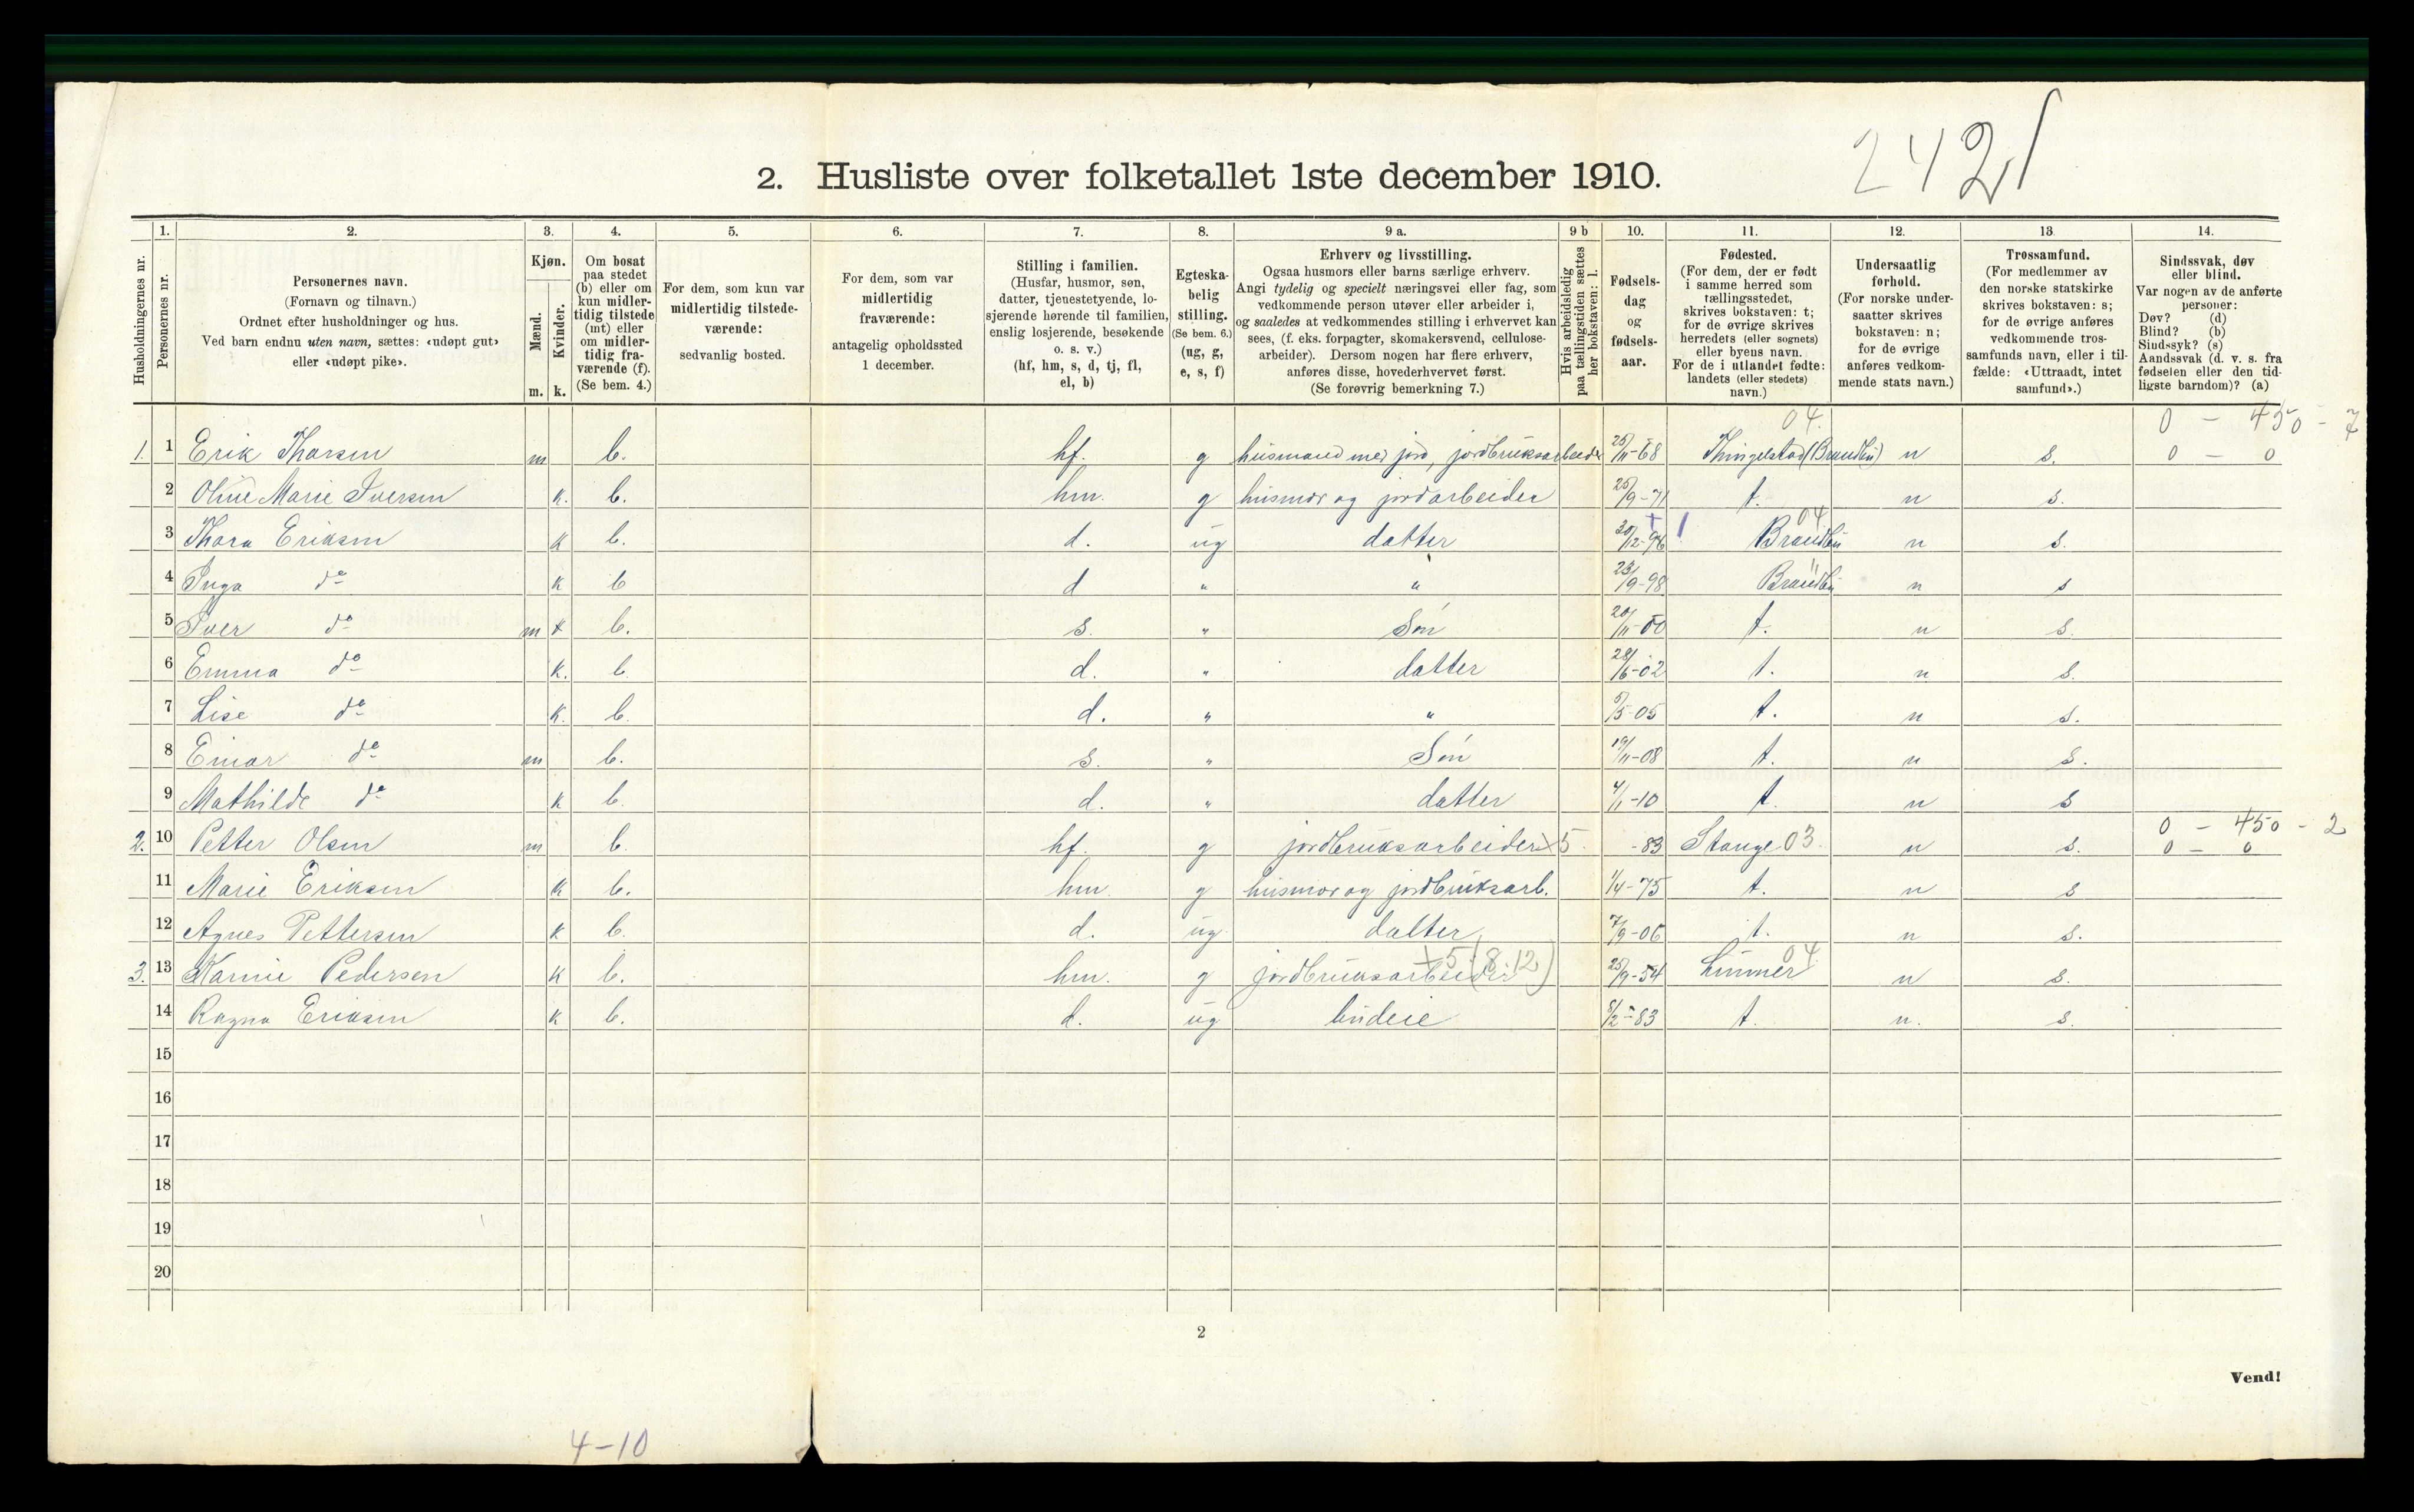 2421
2. Husliste over folketallet 1ste december 1910.
Husholdningernes nr.
1.
Personernes nr.
2.
Personernes navn.
(Fornavn og tilnavn.)
Ordnet efter husholdninger og hus.
Ved barn endnu uten navn, sættes: «udøpt gut»
eller «udøpt pike».
3.
Kjøn.
Mænd.
Kvinder.
m. k.
4.
Om bosat
paa stedet
(b) eller om
kun midler-
tidig tilstede
(mt) eller
om midler-
tidig fra-
værende (f).
(Se bem. 4.)
5.
For dem, som kun var
midlertidig tilstede-
værende:
sedvanlig bosted.
6.
For dem, som var
midlertidig
fraværende:
antagelig opholdssted
1 december.
7.
Stilling i familien.
(Husfar, husmor, søn,
datter, tjenestetyende, lo-
sjerende hørende til familien,
enslig losjerende, besøkende
o. s. v.)
(hf, hm, s, d, tj, fl,
el, b)
8.
Egteska-
belig
stilling.
(Se bem. 6.)
(ug, g,
e, s, f)
9 a.
Erhverv og livsstilling.
Ogsaa husmors eller barns særlige erhverv.
Angi tydelig og specielt næringsvei eller fag, som
vedkommende person utøver eller arbeider i,
og saaledes at vedkommendes stilling i erhvervet kan
sees, (f. eks. forpagter, skomakersvend, cellulose-
arbeider). Dersom nogen har flere erhverv,
anføres disse, hovederhvervet først.
(Se forøvrig bemerkning 7.)
9 b
Hvis arbeidsledig
paa tællingstiden sættes
her bokstaven: l.
10.
Fødsels-
dag
og
fødsels-
aar.
11.
Fødested.
(For dem, der er født
i samme herred som
tællingsstedet,
skrives bokstaven: t;
for de øvrige skrives
herredets (eller sognets)
eller byens navn.
For de i utlandet fødte:
landets (eller stedets)
navn.)
12.
Undersaatlig
forhold.
(For norske under-
saatter skrives
bokstaven: n;
for de øvrige
anføres vedkom-
mende stats navn.)
13
Trossamfund.
(For medlemmer av
den norske statskirke
skrives bokstaven: s;
for de øvrige anføres
vedkommende tros-
samfunds navn, eller i til-
fælde: «Uttraadt, intet
samfund».)
14.
Sindssvak, døv
eller blind.
Var nogen av de anførte
personer:
Døv? (d)
Blind? (b)
Sindssyk? (s)
Aandssvak (d. v. s. fra
fødselen eller den tid-
ligste barndom)? (a)
04. 0 - 450 - 7
1. 1 Erik Thorsen m b. hf. g husmand med jord, jordbruksarbeider 25/11-68 Thingelstad (Brandbu) n s. 0 - 0
2 Oline Marie Iversen k. b. hm. g husmor og jordarbeider 25/9-71 t. n s.
04
3 Thora Eriksen k b. d. ug datter 20/12-96 Brandbu n s.
4 Inga do k b d " " 23/9-98 Brandbu n s
5 Iver do m k b. s. " Søn 20/11-00 t. n s.
6 Emma do k. b. d. " datter 28/6-02 t. n s.
7 Lise do k. b. d. " " 5/5-05 t. n s.
8 Einar do m b. s. " Søn 19/11-08 t. n s.
9 Mathilde do k b. d. " datter 4/1-10 t. n s
0 - 450 - 2
2. 10 Petter Olsen m b. hf. g jordbruksarbeider x5 -83 Stange 03. n s. 0 - 0
11 Marie Eriksen k b. hm. g husmor og jordbruksarb. 1/4-75 t. n s
12 Agnes Pettersen k b. d. ug datter 7/9-06 t. n s.
+5 (8.12) 04
3. 13 Karine Pedersen k b. hm. g jordbruksarbeider 25/9-54 Lunner n s.
14 Ragna Eriksen k b. d. ug budeie 8/2-83 t. n. s.
15
16
17
18
19
20
2
Vend!
4-10